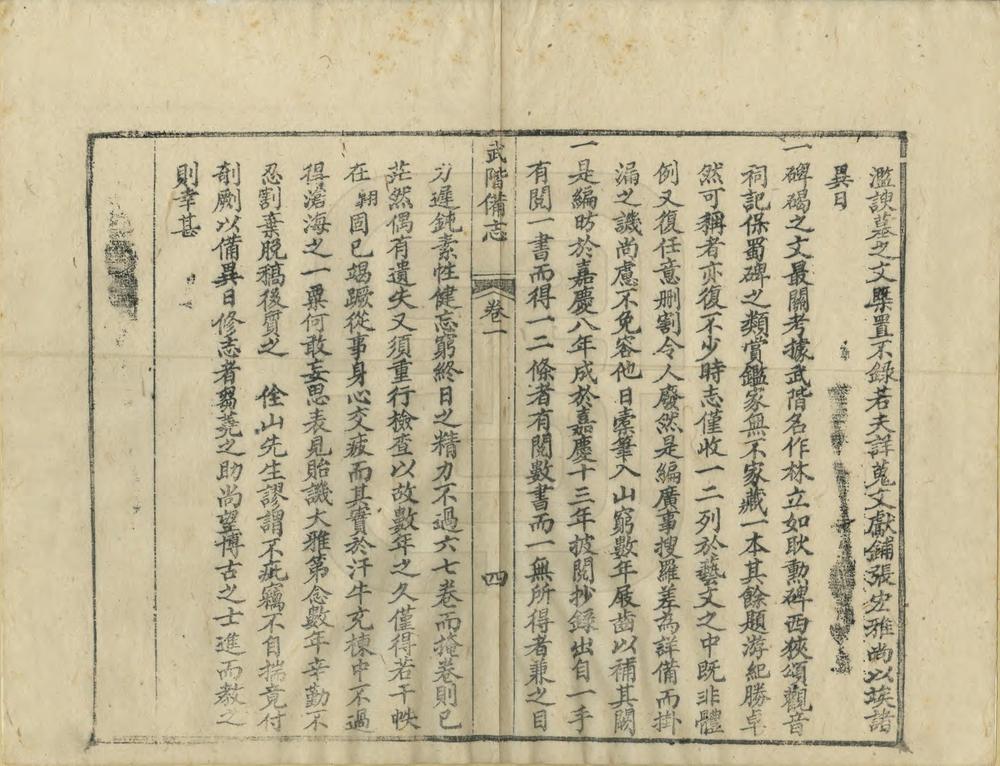 濫諛墓之文槩置不錄若夫詳蒐文獻鋪張宏雅尚以埃諸
異日
一碑碣之文最關考據武階名作林立如耿勳碑西狹頌觀音
祠記保蜀碑之類賞鑑家無不家藏一本其餘題游紀勝卓
然可稱者亦復不少時志僅收一二列於藝文之中既非體
例又復任意刪割令人廢然是編廣事搜羅差為詳備而掛
漏之譏尚慮不免容他日索筆入山窮數年屐齒以補其闕
一是編昉於嘉慶八年成於嘉慶十三年披閱抄錄出自一手
有閱一書而得一二條者有閱數書而一無所得者兼之目
武階備志 卷一 四
力遲鈍素性健忘窮終日之精力不過六七卷而掩卷則已
茫然偶有遺失又須重行檢查以故數年之久僅得若干帙
在翱固已竭蹶從事身心交疲而其實於汗牛充棟中不過
徂滄海之一粟何敢妄思表見貽譏大雅第念數年辛勤不
忍割棄脫稿後質之 佺山先生謬謂不疵竊不自揣竟付
剞劂以備異日修志者芻蕘之助尚望博古之士進而教之
則幸甚